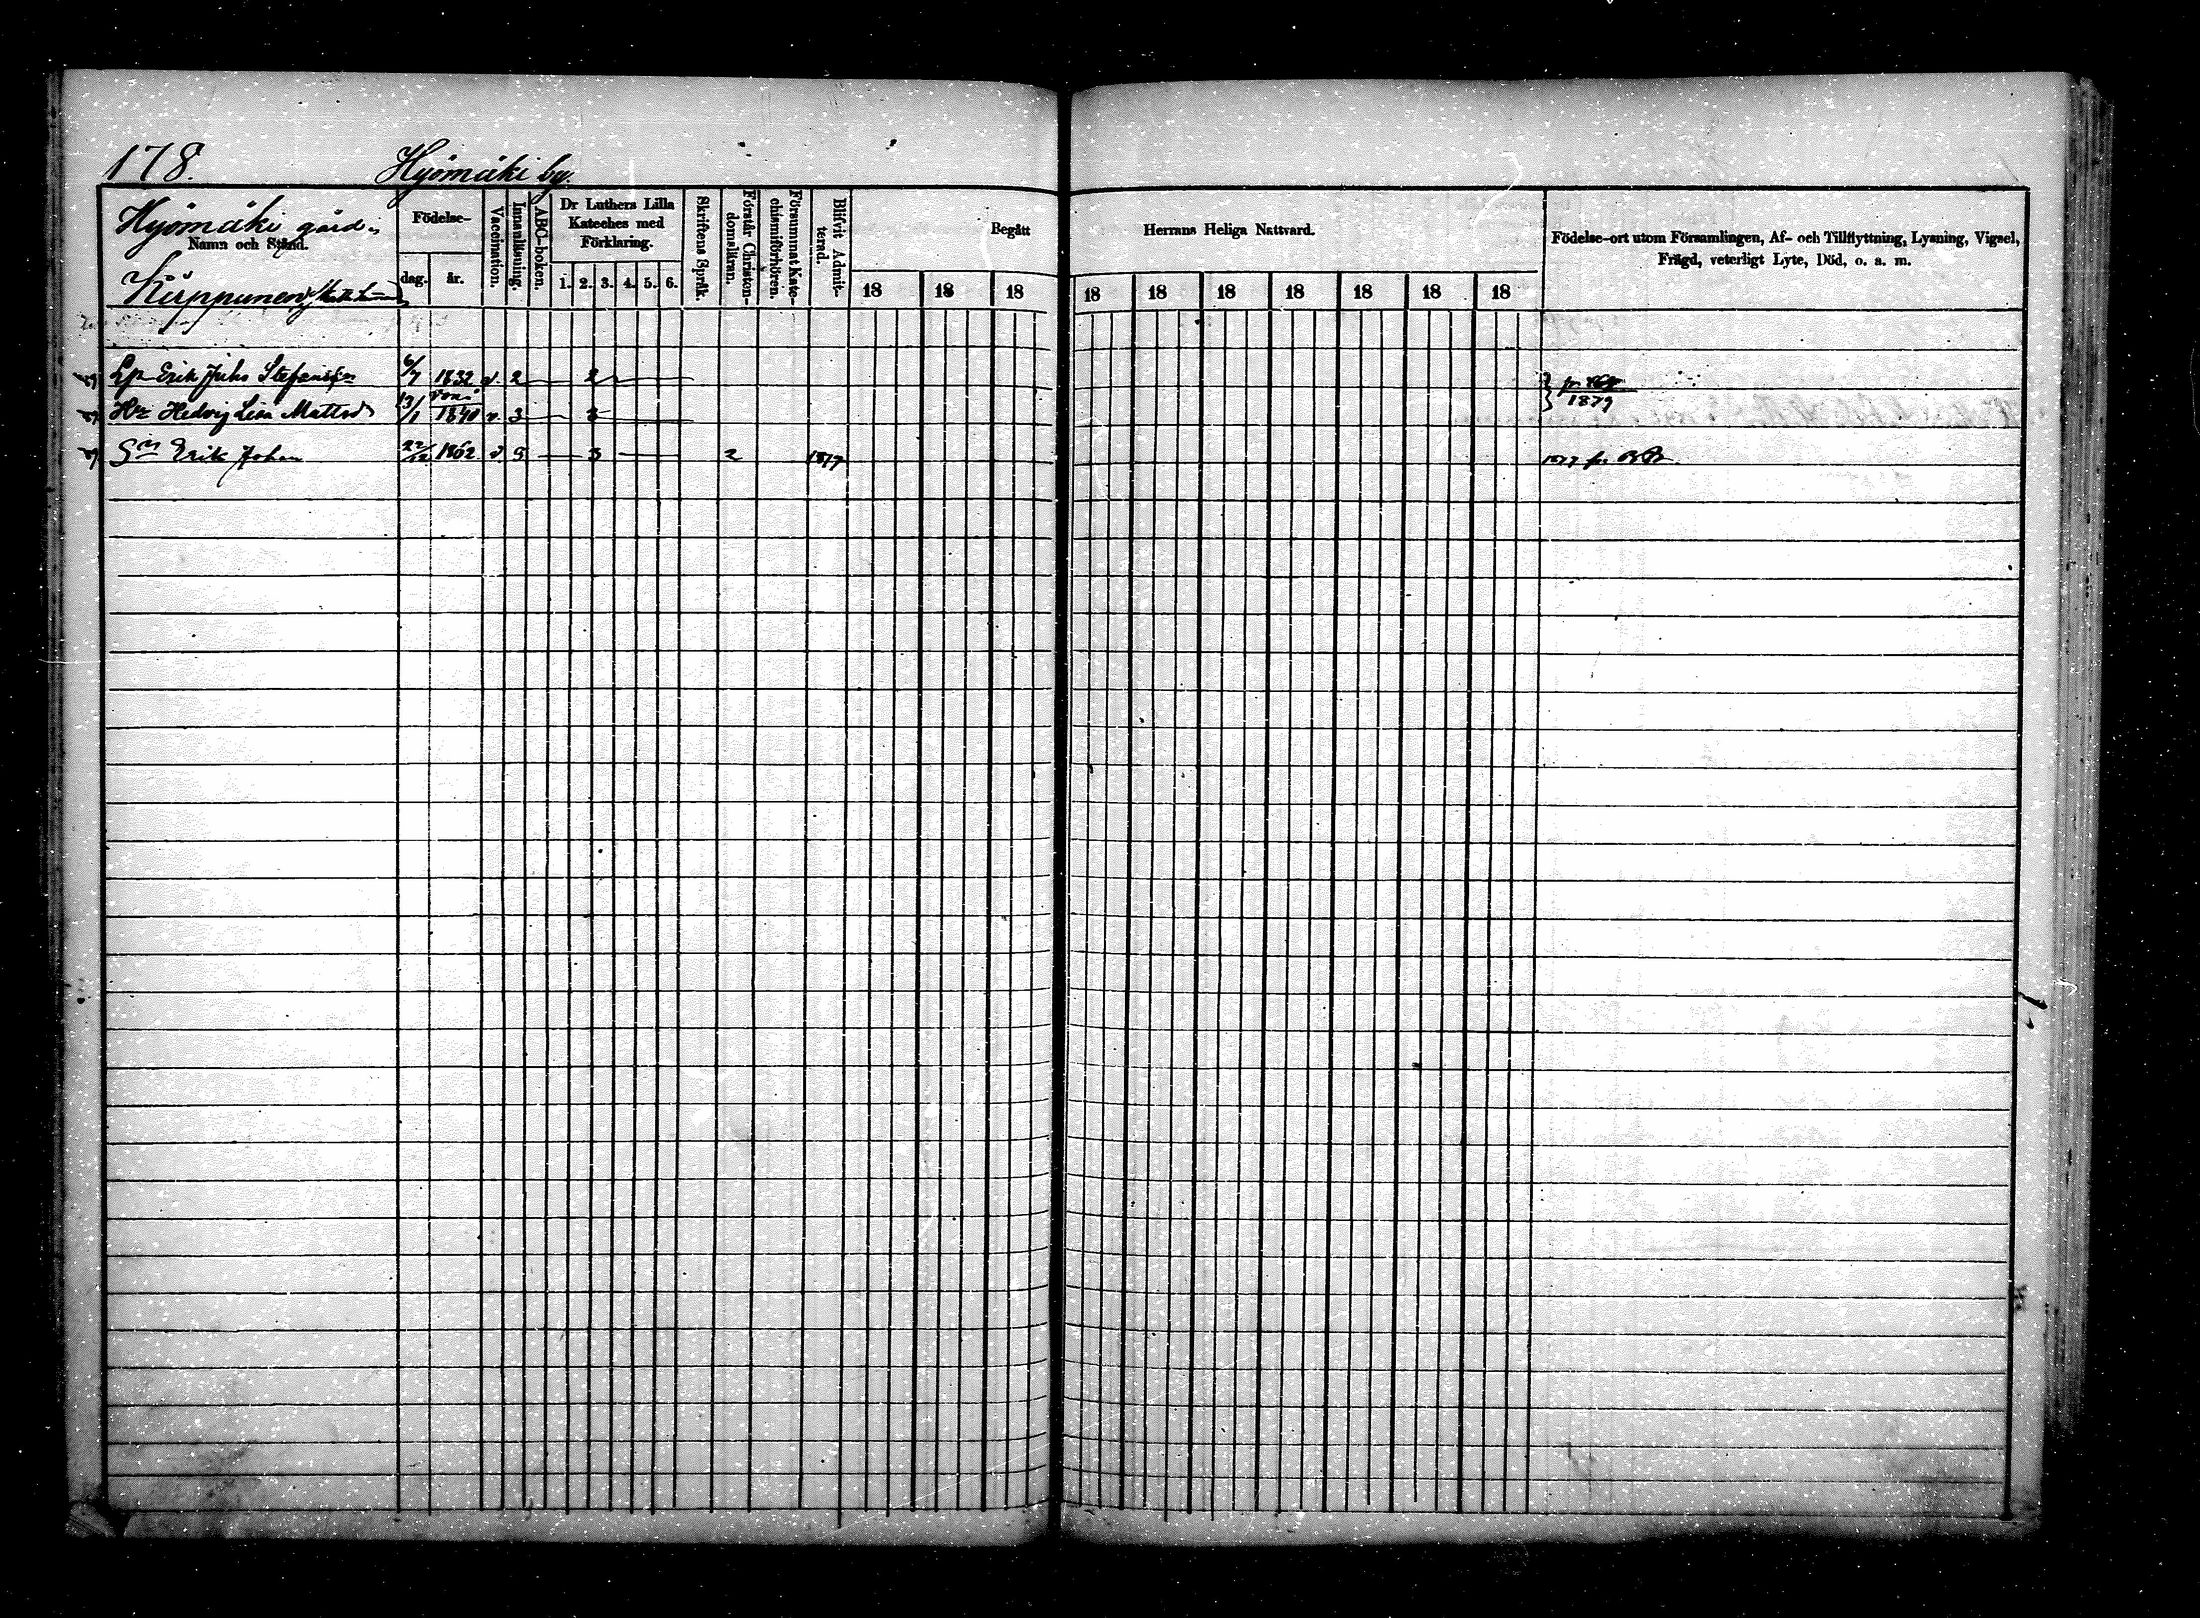 178. Hyömäki by.
Hyömäki gård.
Namn och Stånd.
Födelse-
dag. år.
Vaccination.
Innanläsning.
ABC-boken.
Dr Luthers Lilla
Kateches med
Förklaring.
1. 2. 3. 4. 5. 6.
Skriftens Språk.
Förstår Christen-
domsläran.
Försummat Kate-
chismiförhören.
Blifvit Admit-
terad.
Begått Herrans Heliga Nattvard.
18 18 18 18 18 18 18 18 18 18
Födelse-ort utom Församlingen, Af- och Tillflyttning, Lysning, Vigsel,
Frägd, veterligt Lyte, Död, o. a. m.
Käppunen
Lp Erik Johs Stefansson 6/7 1832 v. 2 2
1879
Hu Hedvig Lisa Mattsd 1/1 1840 v. 3 3
Sn Erik Johan 22/12 1862 v. 3 3 2 1879 1877 fr.